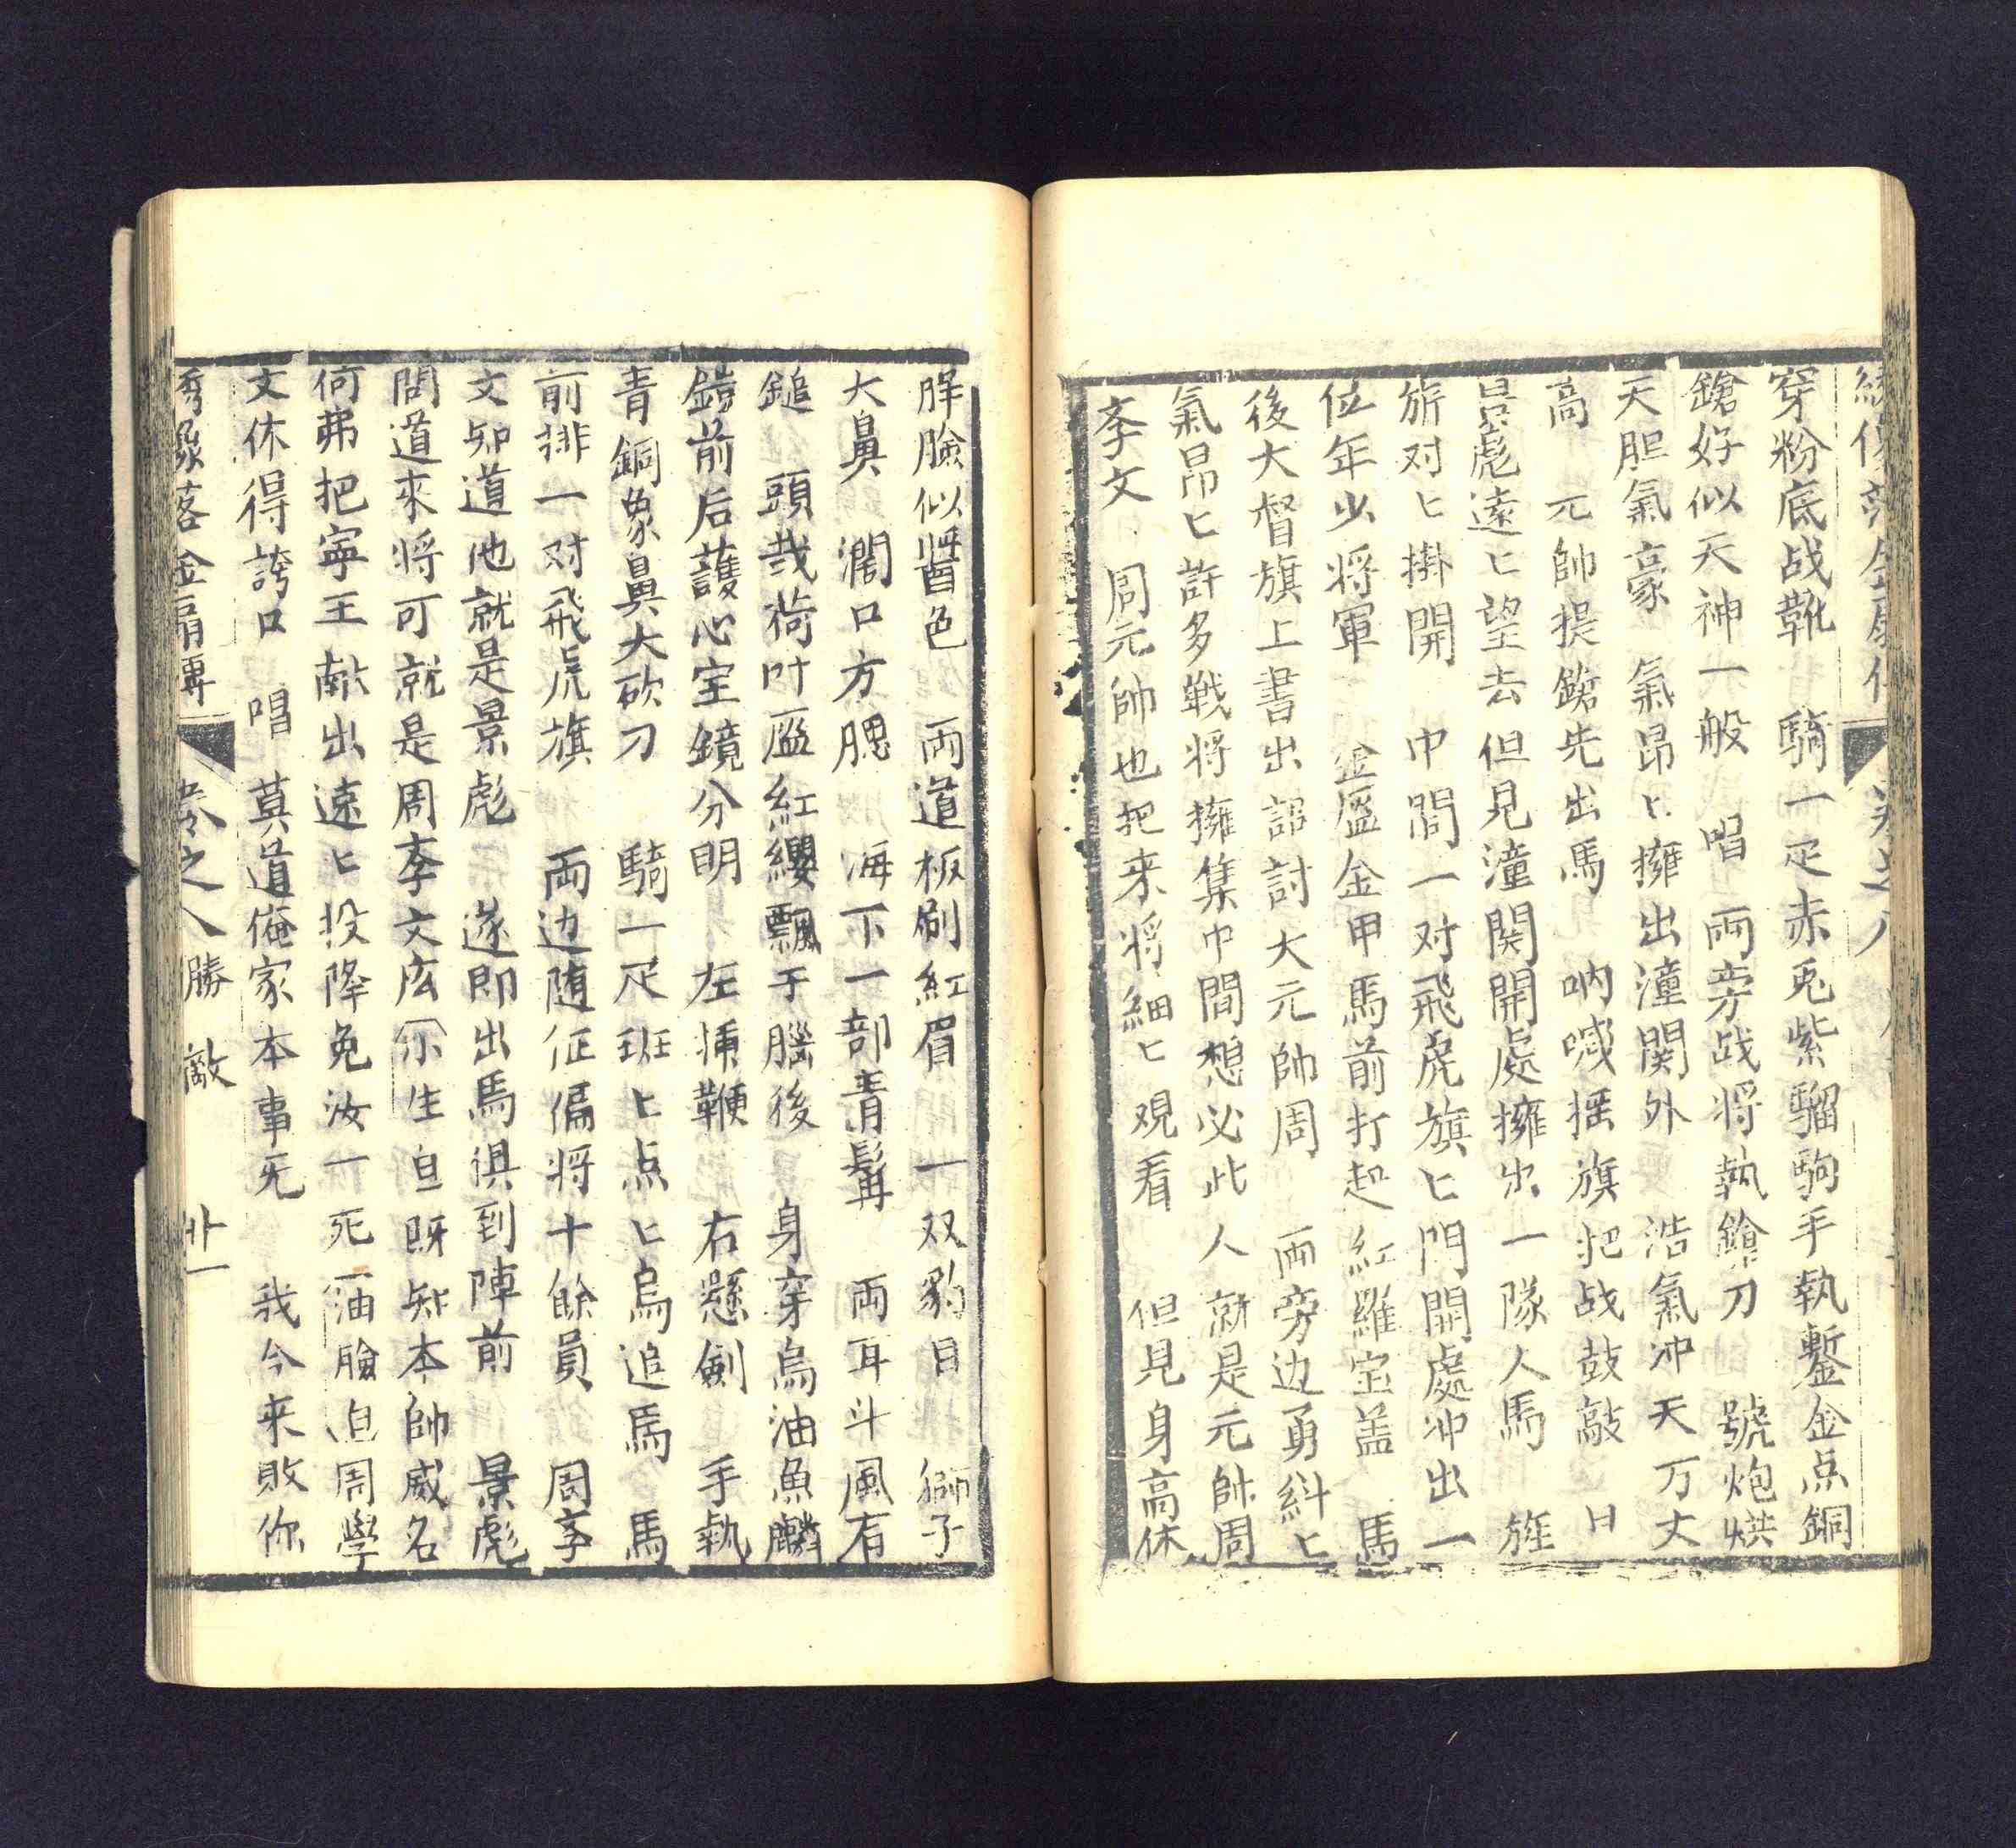 穿粉底战靴　騎一疋赤兎紫騮駒手執鏨金点銅
鎗好似天神一般　唱　両旁战将執鎗刀　號炮烘
天胆氣豪　氣昂匕擁出潼関外　浩氣冲天万丈
高　元帥提鎗先出馬　吶喊摇旗把战鼓敲　日
景彪遠匕望去但見潼関開處擁出一隊人馬　旌
旂对匕掛開　中間一对飛虎旗匕門開處冲出一
位年少将軍　金盔金甲馬前打起紅羅宝盖　馬
後大督旗上書出詔討大元帥周　両旁边勇糾匕
氣昂匕許多戦将擁集中間想必此人就是元帥周
李文　周元帥也把来将細匕观看　但見身高休
胖臉似醬色　両道板刷紅眉　一双豹目　獅子
大鼻　濶口方腮　海下一部青髯　両耳斗風有
鎚　頭戎荷叶盔紅纓飄于腦後　身穿烏油魚麟
鎧前后護心宝鏡分明　左揷鞭　右懸劍　手執
青銅象鼻大砍刀　騎一疋班匕点匕烏追馬　馬
前排一对飛虎旗　両边随征偏将十餘員　周李
文知道他就是景彪　遂即出馬俱到陣前　景彪
問道來将可就是周李文庅　尔　生旦既知本帥威名
何弗把寜王献出遠匕投降免汝一死　油臉旦周學
文休得誇口　唱　莫道俺家本事旡　我今来敗你
秀象落金扇傳　卷之八　勝敵　廿一